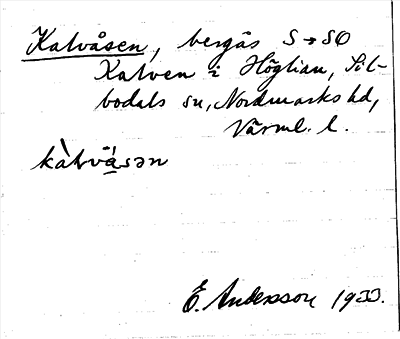 Kalvåsen, bergås S→SO
Kalven i Höglian, Sil-
bodals sn, Nordmarks hd,
Värml. l.
kàlvå̀sən
E. Andersson 1933.